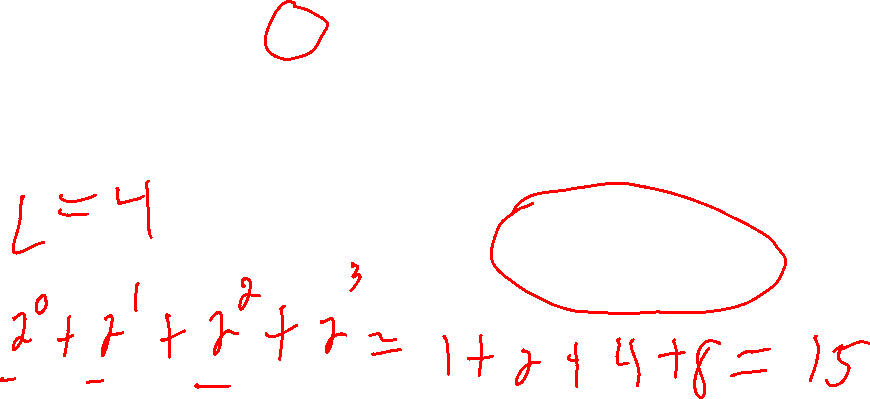 L = 4
2⁰ + 2¹ + 2² + 2³ = 1 + 2 + 4 + 8 = 15